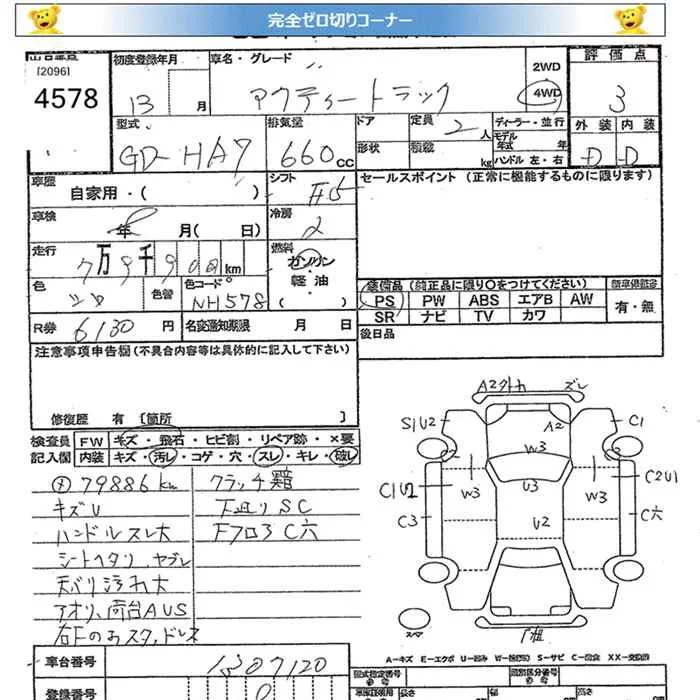 完全ゼロ切りコーナー
[2096]
4578
初度登録年月
13 月
車名・グレード
アクティートラック
2WD
4WD
評価点
3
型式
GD-HA7
排気量
660cc
ドア
形状
定員 2人
積載 kg
ディーラー・並行
モデル年式 年
ハンドル 左・右
外装 内装
D D
車歴
自家用・( )
シフト F5
セールスポイント (正常に機能するものに限ります)
車検
年 月( 日)
冷房
走行
7万9千900km
燃料
ガソリン
軽油
( )
色
色替
色コード
NH578
装備品 (純正品に限り○をつけてください)
PS PW ABS エアB AW
SR ナビ TV カワ
新車保証書
有・無
R券 6130円
名変通知期限 月 日
後日品
注意事項申告欄(不具合内容等は具体的に記入して下さい)
修復歴 有 [箇所 ]
検査員
記入欄
FW キズ・飛石・ヒビ割・リペア跡・×要
内装 キズ・汚レ・コゲ・穴・スレ・キレ・破レ
79886km
キズU
ハンドルスレ大
シートヘタリ、ヤブレ
天バリ汚れ大
アオリ、荷台AUS
クラッチ
下廻りSC
FフロアC穴
A2 ズレ
S1U2
A2
C1
W3
C1U2
W3
U3
W3
C2U1
C3
U2
C穴
スペア
A-キズ E-エクボ U-凹み S-サビ C-腐食
車台番号 1307120
登録番号
型式指定番号
類別区分番号
長さ
幅
高さ